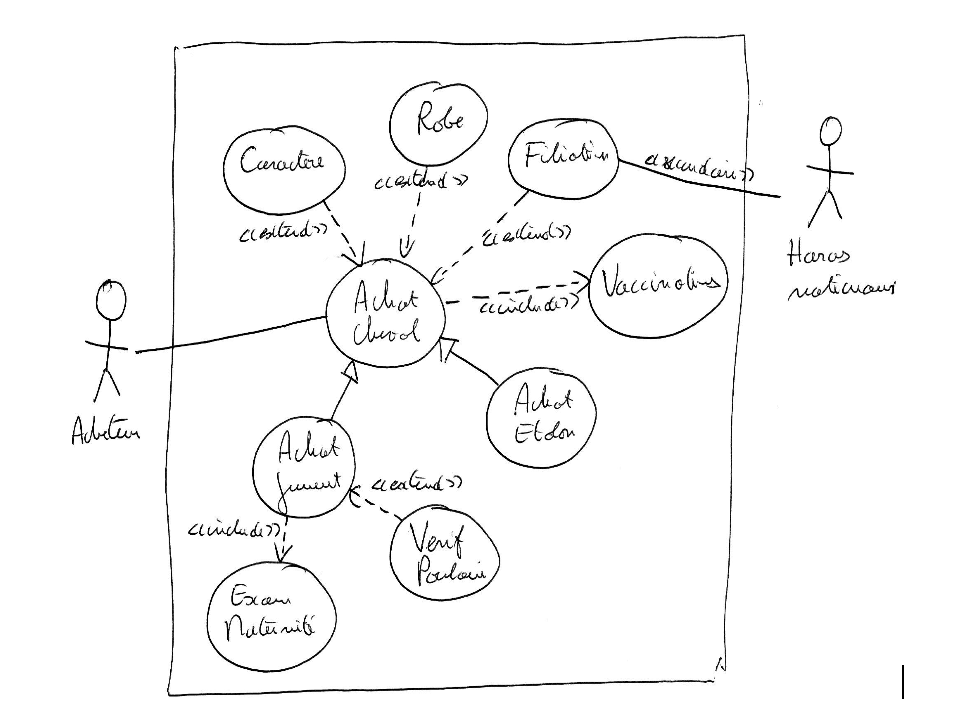 Robe
Caractère
Filiation
<<secondaire>>
<<extend>>
<<extend>>
<<extend>>
Haras
nationaux
Vaccinations
Achat
cheval
<<include>>
Acheteur
Achat
Etalon
Achat
jument
<<extend>>
<<include>>
Verif
Poulain
Exam
Maternité